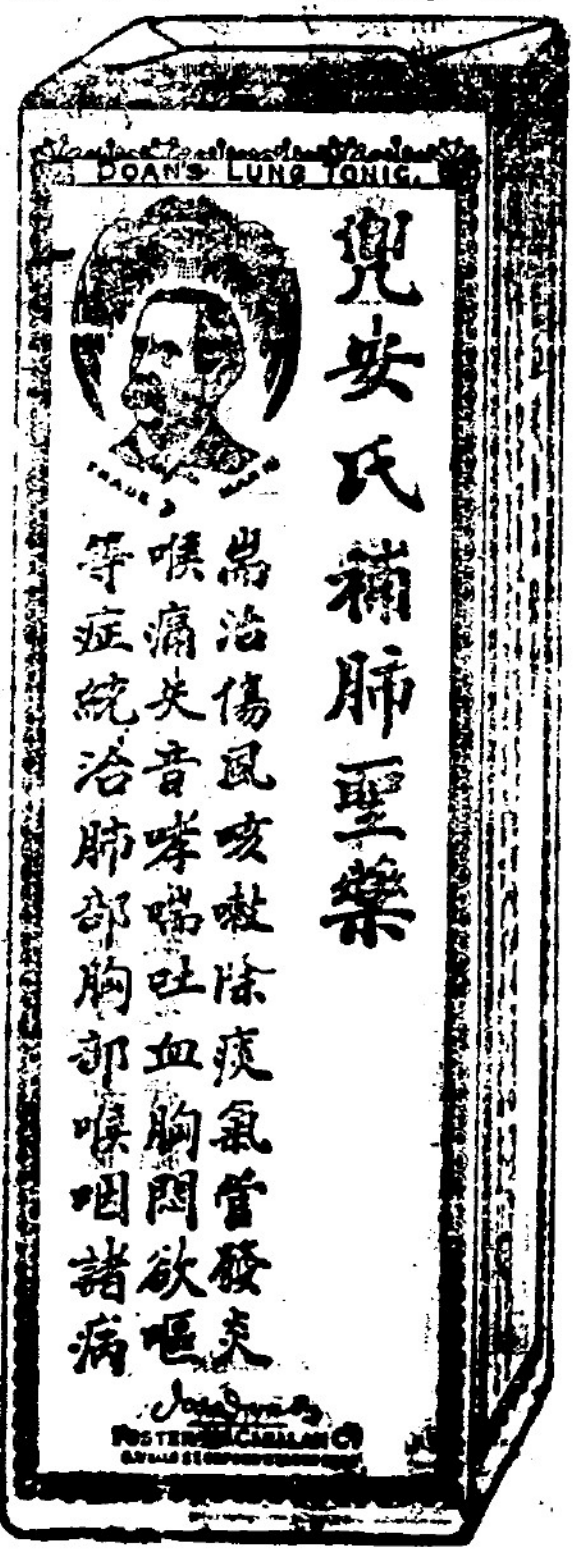 DOAN'S LUNG TONIC.
兜安氏補肺聖藥
TRADE MARK
耑治傷風咳嗽除痰氣管發炎
喉痛失音哮喘吐血胸悶欲嘔
等症統治肺部胸部喉咽諸病
FOSTER-MCCLELLAN CO